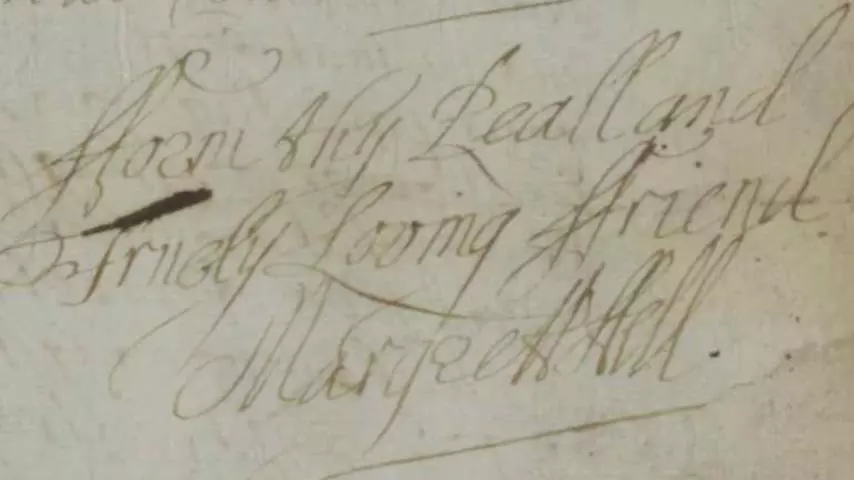 ffrom thy Reall and
Truely Loving ffriend
Margrett ffell.